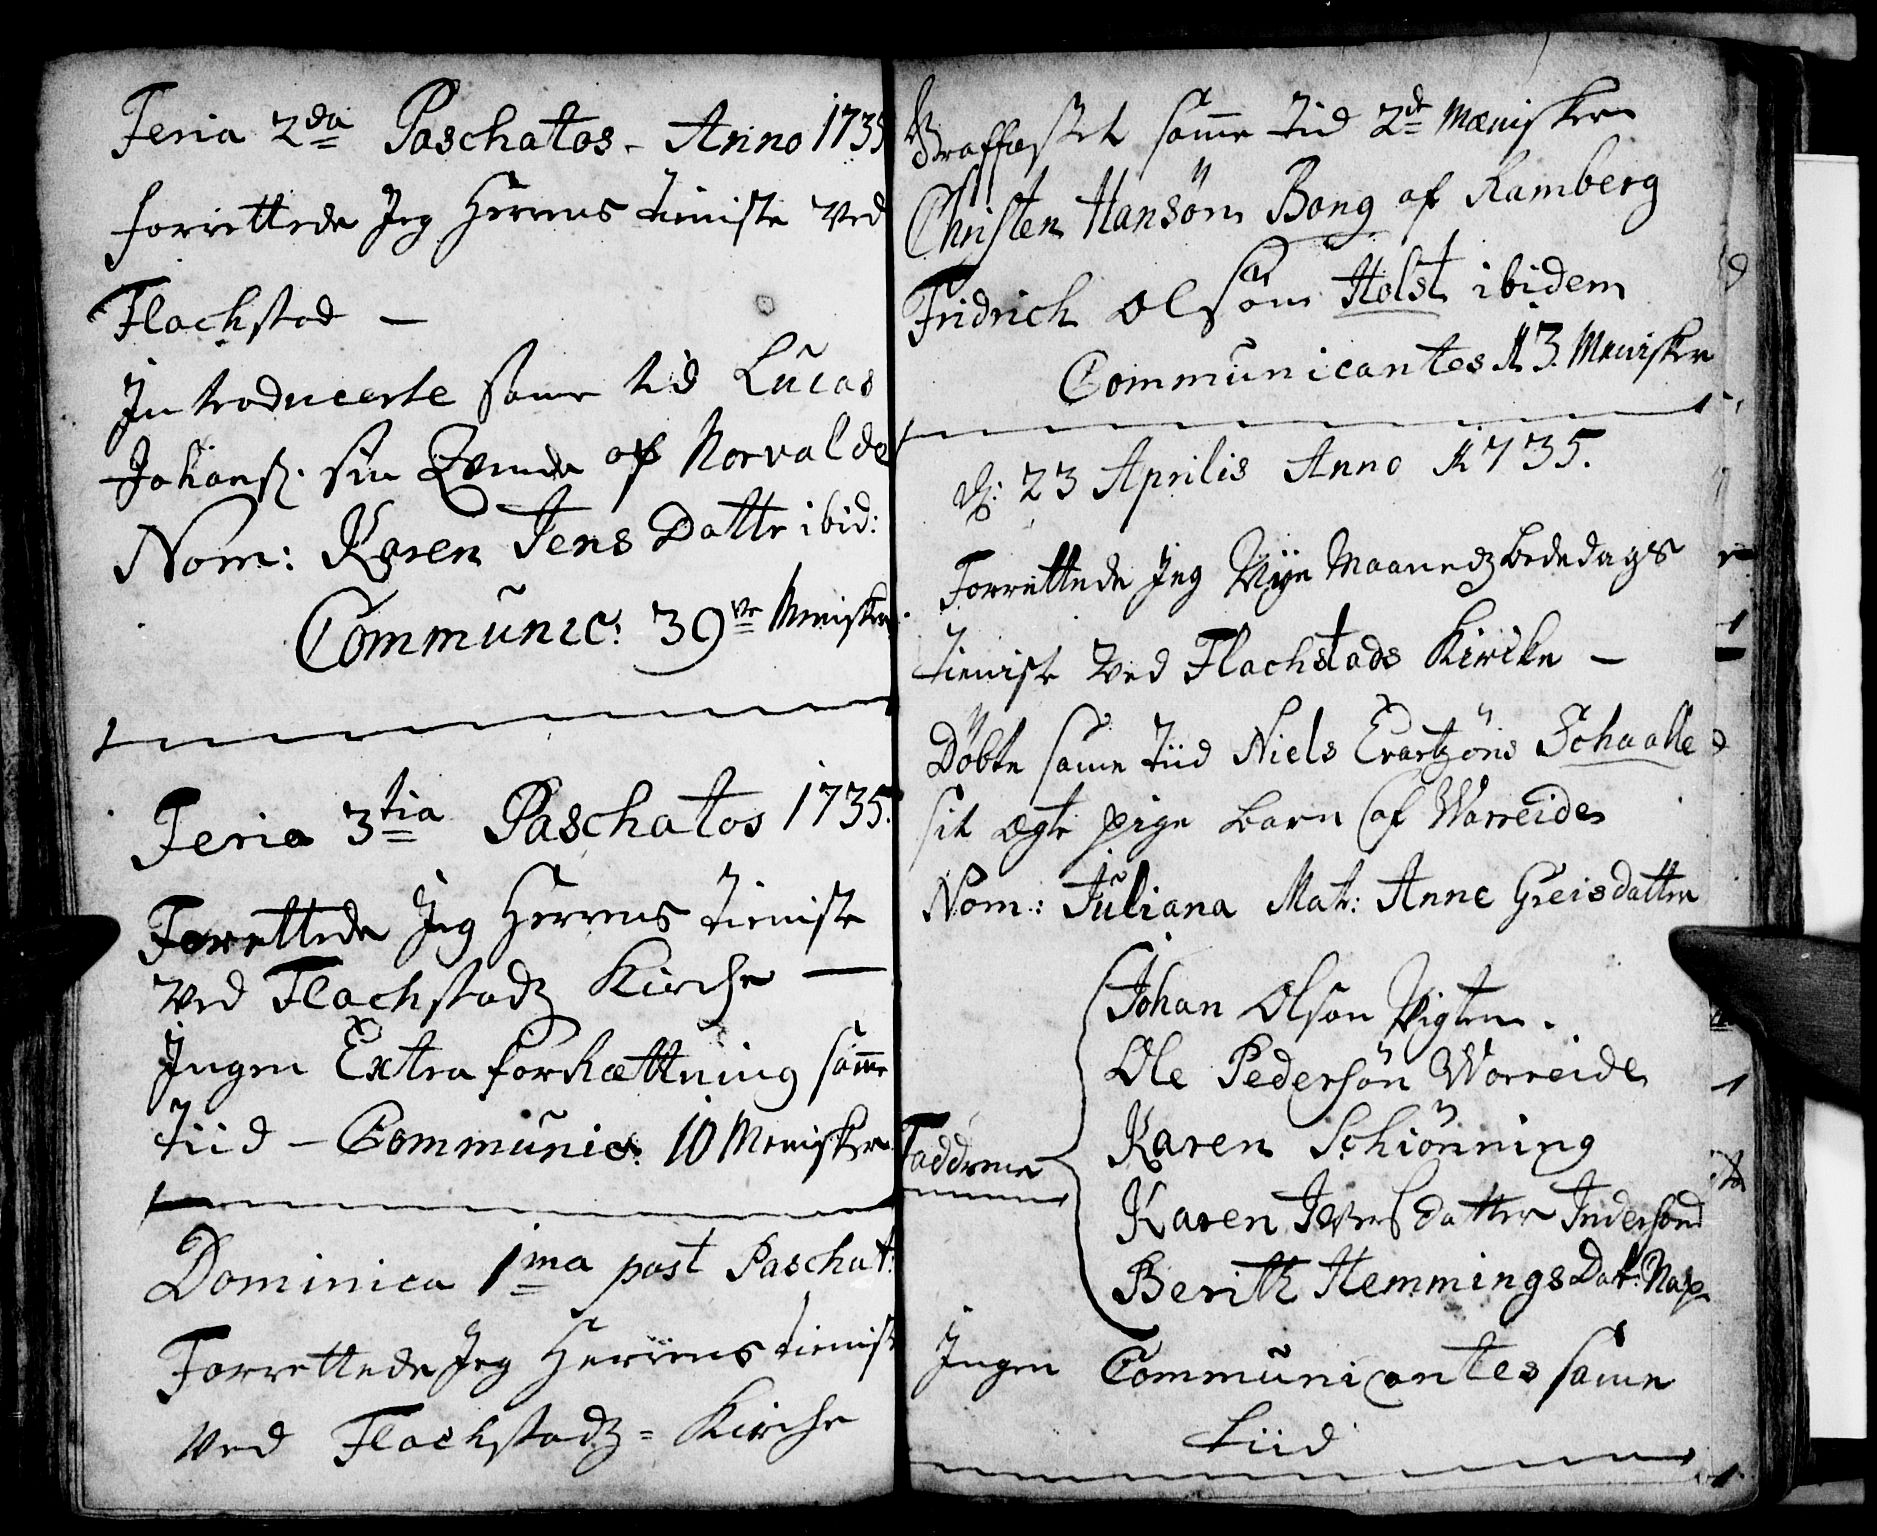 Feria 2da Paschatos - Anno 1735
forrettede Jeg Herrens tieniste ved
Flachstad —
Introducerte samme tid Lucas
Johans: sin Qvinde af Norvalde
Nom: Karen Jens Datter ibid:
Communic: 39ve Menisker
Feria 3tia Paschatos 1735.
Forrettede Jeg Herrens tieniste
ved Flachstadz Kirche —
Ingen Extra forrættning samme
tiid — Communic: 10 Menisker
Dominica 1ma post Paschat:
Forrettede Jeg Herrens tienist
ved Flachstadz = Kirche
Graffæstet samme tid 2de Mænisker
Christen Hansøn Bong af Ramberg
Fridrich Olsøn Holst ibidem
Communicantes 13. Menisker
d: 23 Aprilis Anno 1735.
Forrettede Jeg Nye Maanedz bededags
tieniste ved Flachstads Kircke —
Døbte samme tiid Niels Evartzøns Schaalle
sit ægte pige barn af Warreide
Nom: Juliana Mat: Anne Greisdatter
Johan Olson Vigten.
Ole Pedersøn Worreide
Faddrene
Karen Schiønning
Karen Iversdatter Indersand
Berith Hemmings Dat: Nap
Ingen Communicantes samme
tiid